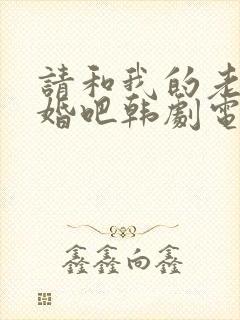 請和我的老
婚吧韩劇電
鑫鑫向鑫